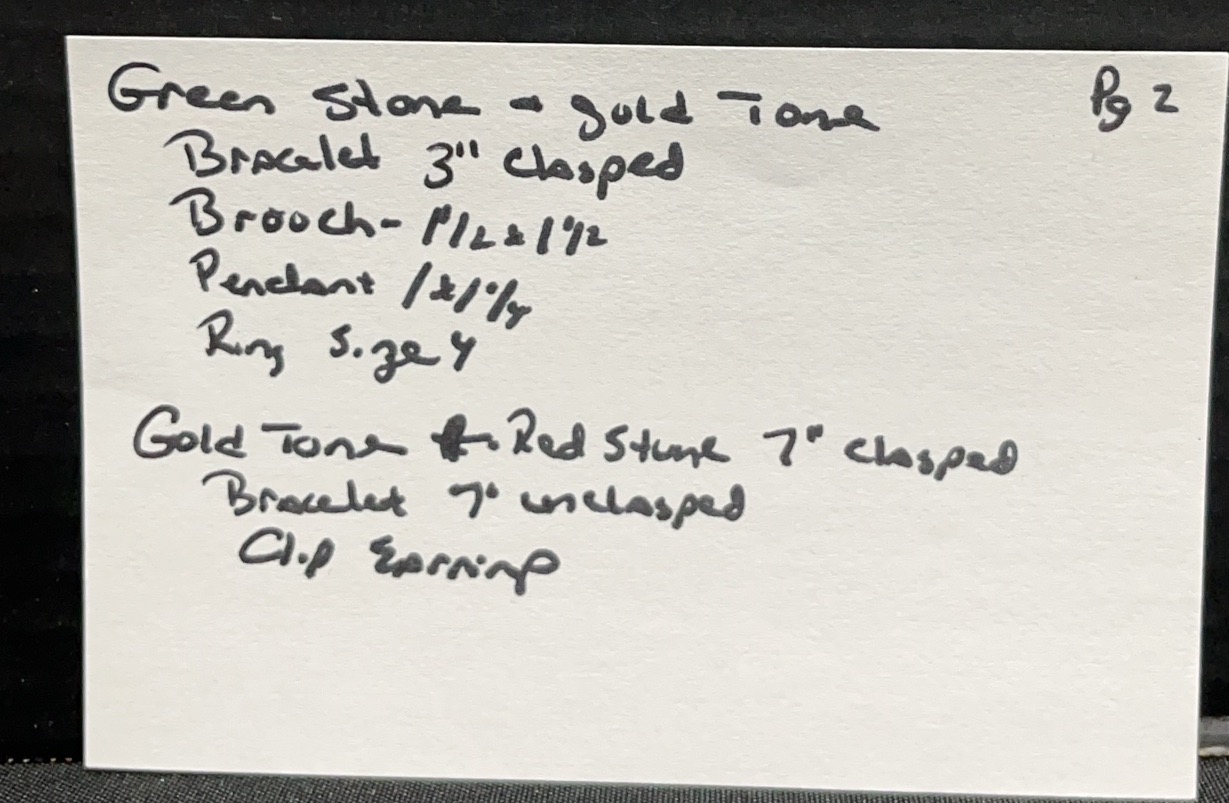 Green Stone - gold Tone Pg 2
Bracelet 3" clasped
Brooch- 1"1/2 x 1"1/2
Pendant 1 x 1"/4
Ring Size 4
Gold Tone Red Stone 7" clasped
Bracelet 7" unclasped
Clip Earring